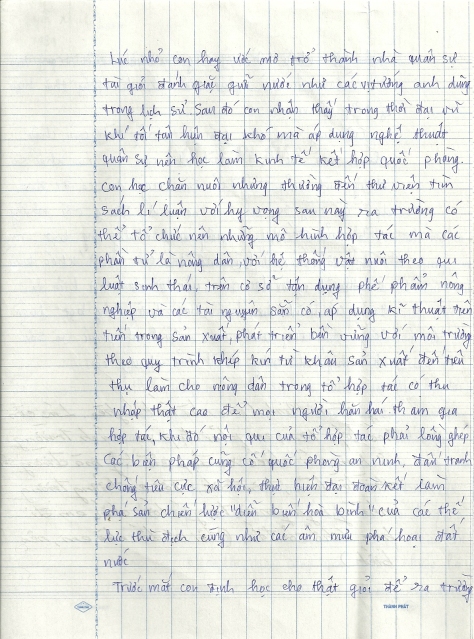 Lúc nhỏ con hay ước mơ trở thành nhà quân sự
tài giỏi đánh giặc giữ nước như các vị tướng anh dũng
trong lịch sử. Sau đó con nhận thấy trong thời đại vũ
khí tối tân hiện đại khó mà áp dụng nghệ thuật
quân sự nên học làm kinh tế kết hợp quốc phòng.
Con học chăn nuôi nhưng thường đến thư viện tìm
sách lí luận với hy vọng sau này ra trường có
thể tổ chức nên những mô hình hợp tác mà các
phần tử là nông dân, với hệ thống vật nuôi theo qui
luật sinh thái, trên cơ sở tận dụng phế phẩm nông
nghiệp và các tài nguyên sẵn có, áp dụng kĩ thuật tiên
tiến trong sản xuất, phát triển bền vững với môi trường
theo quy trình khép kín từ khâu sản xuất đến tiêu
thụ làm cho nông dân trong tổ hợp tác có thu
nhập thật cao để mọi người hăn hái tham gia
hợp tác, khi đó nội qui của tổ hợp tác phải lồng ghép
các biện pháp củng cố quốc phòng an ninh, đấu tranh
chống tiêu cực xã hội, thực hiện đại đoàn kết làm
phá sản chiến lược "diễn biến hoà bình" của các thế
lực thù địch cũng như các âm mưu phá hoại đất
nước
Trước mắt con định học cho thật giỏi để ra trường
THÀNH PHÁT